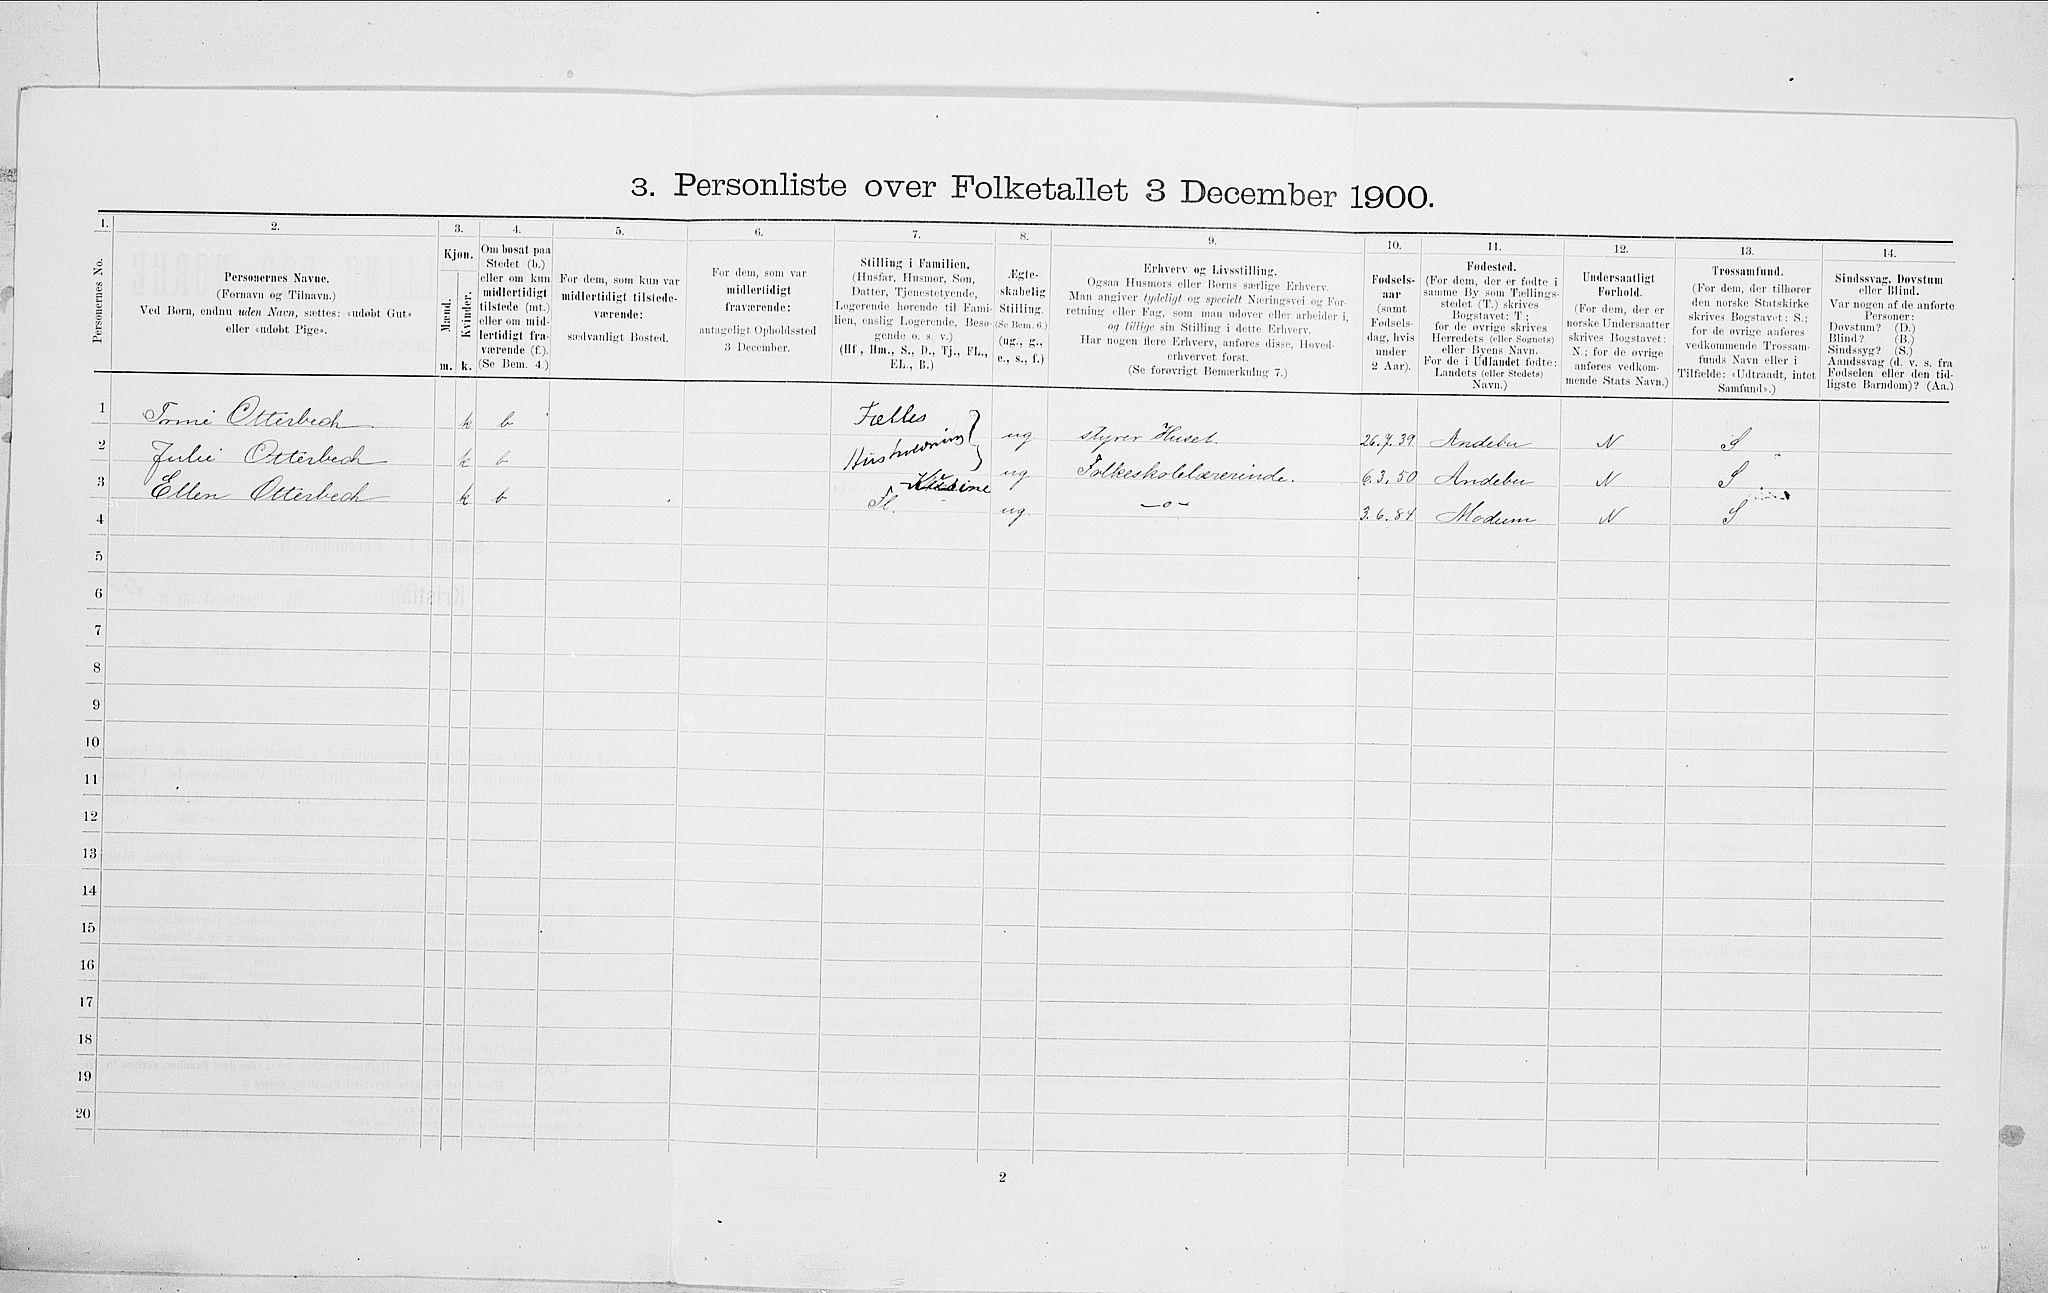 3. Personliste over Folketallet 3 December 1900.
1. 2. 3. 4. 5. 6. 7. 8. 9. 10. 11. 12. 13. 14.
Personernes No.
Personernes Navne.
(Fornavn og Tilnavn.)
Ved Børn, endnu uden Navn, sættes: «udøbt Gut»
eller «udøbt Pige».
Kjøn.
Mænd.
Kvinder.
m. k.
Om bosat paa
Stedet (b.)
eller om kun
midlertidigt
tilstede (mt.)
eller om mid-
lertidigt fra-
værende (f.).
(Se Bem. 4.)
For dem, som kun var
midlertidigt tilstede-
værende:
sædvanligt Bosted.
For dem, som var
midlertidigt
fraværende:
antageligt Opholdssted
3 December.
Stilling i Familien.
(Husfar, Husmor, Søn,
Datter, Tjenestetyende,
Logerende hørende til Fami-
lien, enslig Logerende, Besø-
gende o. s. v.)
(Hf., Hm., S., D., Tj., FL.,
EL., B.)
Ægte-
skabelig
Stilling.
(Se Bem. 6.)
(ug., g.,
e., s., f.)
Erhverv og Livsstilling.
Ogsaa Husmors eller Børns særlige Erhverv.
Man angiver tydeligt og specielt Næringsvei og For-
retning eller Fag, som man udøver eller arbeider i,
og tillige sin Stilling i dette Erhverv.
Har nogen flere Erhverv, anføres disse, Hoved-
erhvervet først.
(Se forøvrigt Bemærkning 7.)
Fødsels-
aar
(samt
Fødsels-
dag, hvis
under
2 Aar).
Fødested.
(For dem, der er fødte i
samme By som Tællings-
stedet (T.) skrives
Bogstavet: T;
for de øvrige skrives
Herredets (eller Sognets)
eller Byens Navn.
For de i Udlandet fødte:
Landets (eller Stedets)
Navn.)
Undersaatligt
Forhold.
(For dem, der er
norske Undersaatter
skrives Bogstavet:
N.; for de øvrige
anføres vedkom-
mende Stats Navn.)
Trossamfund.
(For dem, der tilhører
den norske Statskirke
skrives Bogstavet: S.;
for de øvrige anføres
vedkommende Trossam-
funds Navn eller i
Tilfælde: «Udtraadt, intet
Samfund».)
Sindssvag, Døvstum
eller Blind.
Var nogen af de anførte
Personer:
Døvstum? (D.)
Blind? (B.)
Sindssyg? (S.)
Aandssvag (d. v. s. fra
Fødselen eller den tid-
ligste Barndom)? (Aa.)
1 Otterbech k b Fælles ug. styrer Huset. 26.7.39 Andebu N S
2 Julie Otterbech k b Husholdning ug Folkeskolelærerinde. 6.3.50 Andebu N S
3 Ellen Otterbech k b Fl. Kusine ug. —o— 3.6.84 Modum N S
4
5
6
7
8
9
10
11
12
13
14
15
16
17
18
19
20
2